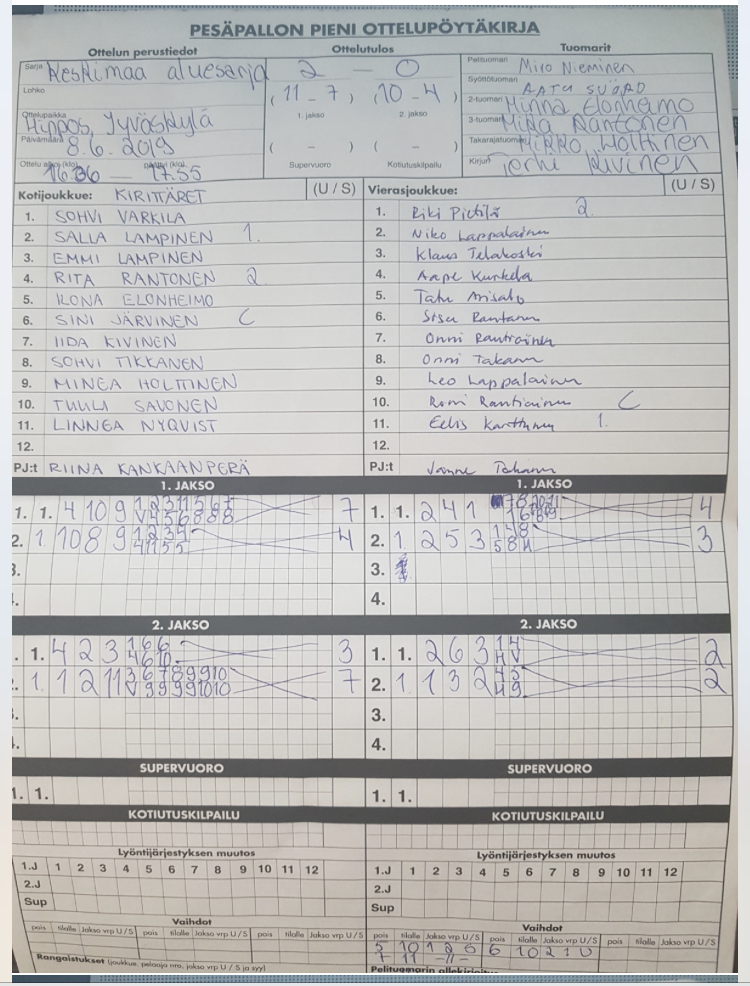 PESÄPALLON PIENI OTTELUPÖYTÄKIRJA
Ottelun perustiedot
Ottelutulos
Tuomarit
Sarja Keskimaa aluesarja
2 - 0
Pelituomari Miro Nieminen
Lohko
(11 - 7) (10 - 4)
Syöttötuomari AATU SUÖRD
1. jakso 2. jakso
2-tuomari Minna Elonheimo
Ottelupaikka Hippos, Jyväskylä
3-tuomari Mika Rantonen
Päivämäärä 8.6.2019
( - ) ( - )
Takarajatuomari Mikko Holttinen
Ottelu alkoi (klo) 16.36 - 17.55
Supervuoro Kotiutuskilpailu
Kirjuri Terhi Kivinen
Kotijoukkue: KIRITTÄRET (U / S)
1. SOHVI VARKILA
2. SALLA LAMPINEN 1.
3. EMMI LAMPINEN
4. RITA RANTONEN 2.
5. ILONA ELONHEIMO
6. SINI JÄRVINEN C
7. IIDA KIVINEN
8. SOHVI TIKKANEN
9. MINEA HOLTTINEN
10. TUULI SAVONEN
11. LINNEA NYQVIST
12.
PJ:t RIINA KANKAANPERÄ
Vierasjoukkue: (U / S)
1. Riki Pietilä 2.
2. Niko Lappalainen
3. Klaus Telakoski
4. Aape Kunkela
5. Tatu Arisalo
6.
7. Onni Rautiainen
8. Onni Takanen
9. Leo Lappalainen
10. Roni Rantiainen C
11. Eelis Karttunen 1.
12.
PJ:t Janne Takanen
1. JAKSO
1. 1. 4 10 9 7
2. 1 10 8 9 4
3.
4.
1. JAKSO
1. 1. 2 4 1 4
2. 1 2 5 3 3
3.
4.
2. JAKSO
1. 4 2 3 3
1 1 2 11 7
2. JAKSO
1. 1. 2 6 3 2
2. 1 1 3 2 2
3.
4.
SUPERVUORO
1. 1.
SUPERVUORO
1. 1.
KOTIUTUSKILPAILU
KOTIUTUSKILPAILU
Lyöntijärjestyksen muutos
1.J 1 2 3 4 5 6 7 8 9 10 11 12
2.J
Sup
Lyöntijärjestyksen muutos
1.J 1 2 3 4 5 6 7 8 9 10 11 12
2.J
Sup
Vaihdot
pois tilalle Jakso vrp U/S pois tilalle Jakso vrp U/S pois tilalle Jakso vrp U/S
Vaihdot
pois tilalle Jakso vrp U/S pois tilalle Jakso vrp U/S pois tilalle Jakso vrp U/S
5 10 1 2 S 6 10 2 1 U
7 11 -11-
Rangaistukset (joukkue, pelaaja nro, jakso vrp U / S ja syy)
Pelituomarin allekirjoitus